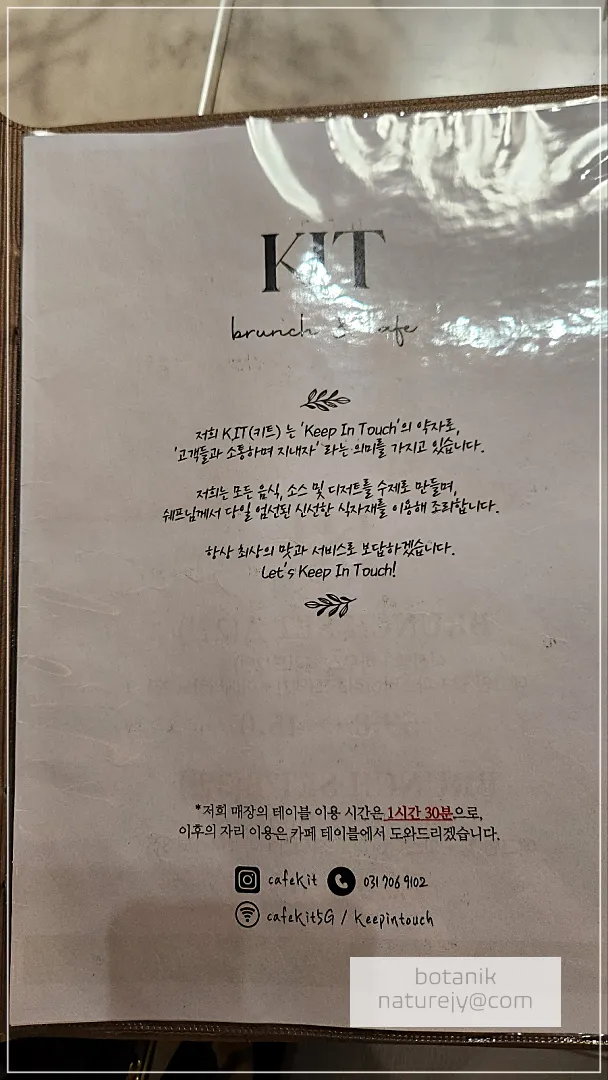 KIT
brunch & cafe
저희 KIT(키트) 는 'Keep In Touch'의 약자로,
'고객들과 소통하며 지내자' 라는 의미를 가지고 있습니다.
저희는 모든 음식, 소스 및 디저트를 수제로 만들며,
쉐프님께서 당일 엄선된 신선한 식자재를 이용해 조리합니다.
항상 최상의 맛과 서비스로 보답하겠습니다.
Let's Keep In Touch!
*저희 매장의 테이블 이용 시간은 1시간 30분으로,
이후의 자리 이용은 카페 테이블에서 도와드리겠습니다.
cafekit 031 706 9102
cafekit5G / keepintouch
botanik
naturejy@com